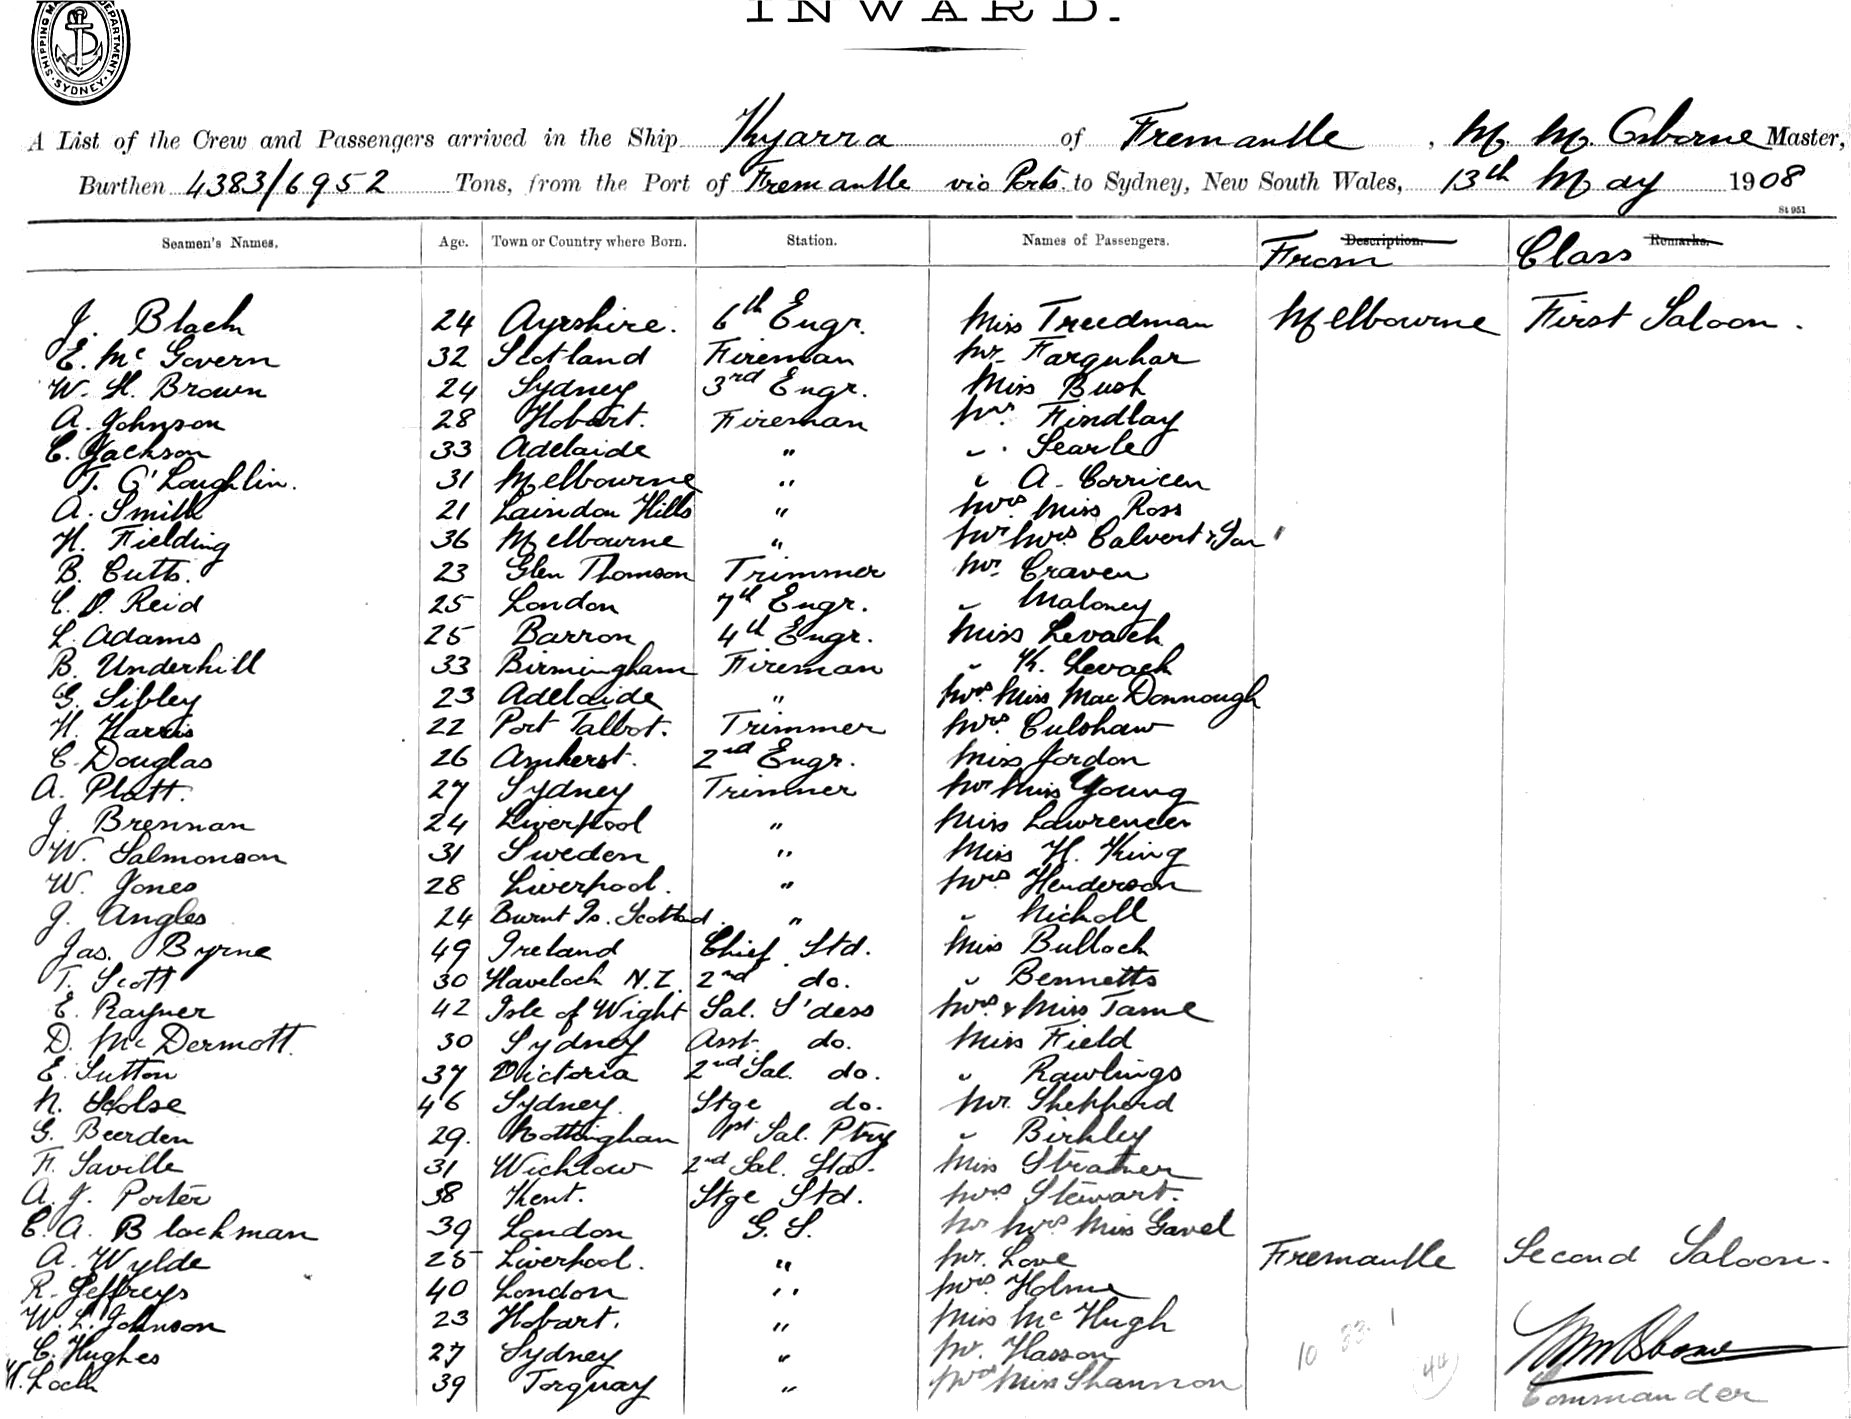 SHIPPING MASTER'S DEPARTMENT. SYDNEY
INWARD.
A List of the Crew and Passengers arrived in the Ship Kyarra of Fremantle, M. M. Osborne Master,
Burthen 4383/6952 Tons, from the Port of Fremantle via Ports to Sydney, New South Wales, 13th May 1908
St 951
Seamen's Names. Age. Town or Country where Born. Station. Names of Passengers. Description. Remarks.
From Class
J. Black 24 Ayrshire. 6th Engr. Miss Treedman Melbourne First Saloon.
E. McGovern 32 Scotland Fireman Mr. Farquhar
W. H. Brown 24 Sydney 3rd Engr. Miss Bush
A. Johnson 28 Hobart. Fireman Mrs. Findlay
C. Jackson 33 Adelaide " " Searle
T. O'Loughlin. 31 Melbourne " " A. Corricen
A. Smith 21 Laindon Hills " Mrs. Miss Ross
H. Fielding 36 Melbourne " Mr Mrs. Calvert &
B. Cutts. 23 Glen Thomson Trimmer Mr. Craven
C. D. Reid 25 London 7th Engr. " Maloney
L. Adams 25 Barron 4th Engr. Miss Levack
B. Underhill 33 Birmingham Fireman " K. Levack
G. Sibley 23 Adelaide " Mrs. Miss MacDonnough
H. Harris 22 Port Talbot. Trimmer Mrs. Culshaw
C. Douglas 26 Amherst. 2nd Engr. Miss Jordon
A. Platt. 27 Sydney Trimmer Mr Miss Young
J. Brennan 24 Liverpool " Miss Lawrence
W. Salmonson 31 Sweden " Miss H. King
W. Jones 28 Liverpool. " Mrs. Henderson
J. Angles 24 Burnt Is. Scotland. " " Nicholl
Jas. Byrne 49 Ireland Chief Std. Miss Bulloch
T. Scott 30 Havelock N.Z. 2nd do. " Bennetts
E. Rayner 42 Isle of Wight Sal. S'dess Mrs. & Miss Tame
D. McDermott. 30 Sydney Asst. do. Miss Field
E. Sutton 37 Victoria 2nd Sal. do. " Rawlings
N. Holse 46 Sydney. Stge do. Mr. Shepperd
G. Beerden 29. Nottingham 1st Sal. Ptry " Birkley
F. Saville 31 Wicklow 2nd Sal. Std. Miss
A. J. Porter 38 Kent. Stge Std. Mrs Stewart.
C. A. Blackman 39 London G. S. Mr Mrs. Miss Gavel
A. Wylde 25 Liverpool. " Mr. Love Fremantle Second Saloon.
R. Jeffreys 40 London " Mrs. Holme
W. L. Johnson 23 Hobart. " Miss McHugh
C. Hughes 27 Sydney " Mr. Hasson 10 33 1
W. Lock 39 Torquay " Mrs Miss Shannon 44
Commander